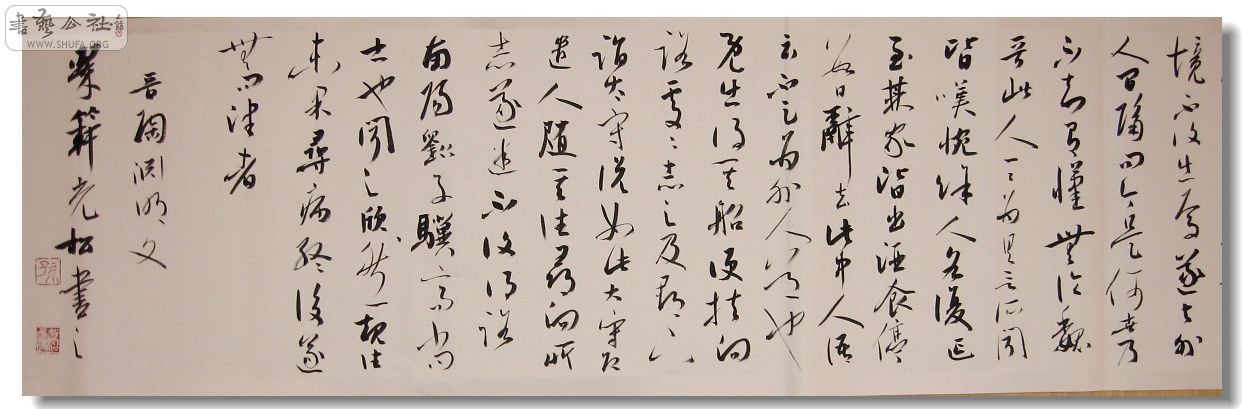 書藝公社
WWW.SHUFA.ORG
境不復出焉遂與外
人間隔問今是何世乃
不知有漢無論魏
晉此人一一為具言所聞
皆嘆惋餘人各復延
至其家皆出酒食停
數日辭去此中人語
云不足為外人道也
既出得其船便扶向
路處〻志之及郡下
詣太守說如此太守即
遣人隨其往尋向所
志遂迷不復得路
南陽劉子驥高尚
士也聞之欣然規往
未果尋病終後遂
無問津者
晉陶淵明文
松書之